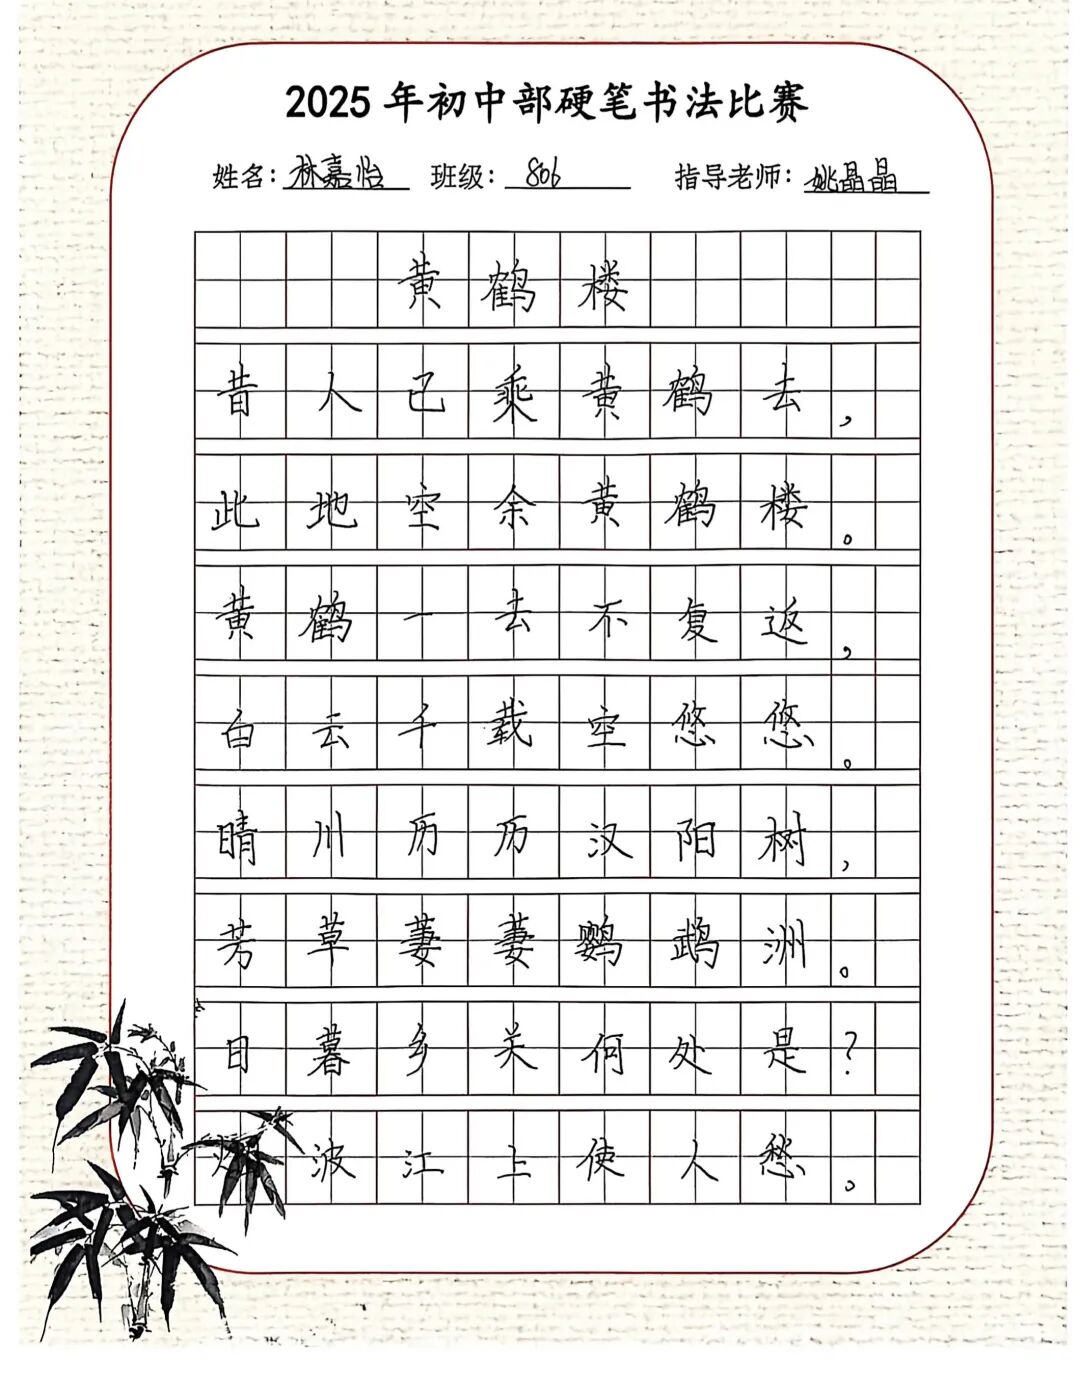 2025年初中部硬笔书法比赛
姓名：林嘉怡 班级：806 指导老师：姚晶晶
黄鹤楼
昔人已乘黄鹤去，
此地空余黄鹤楼。
黄鹤一去不复返，
白云千载空悠悠。
晴川历历汉阳树，
芳草萋萋鹦鹉洲。
日暮乡关何处是？
波江上使人愁。